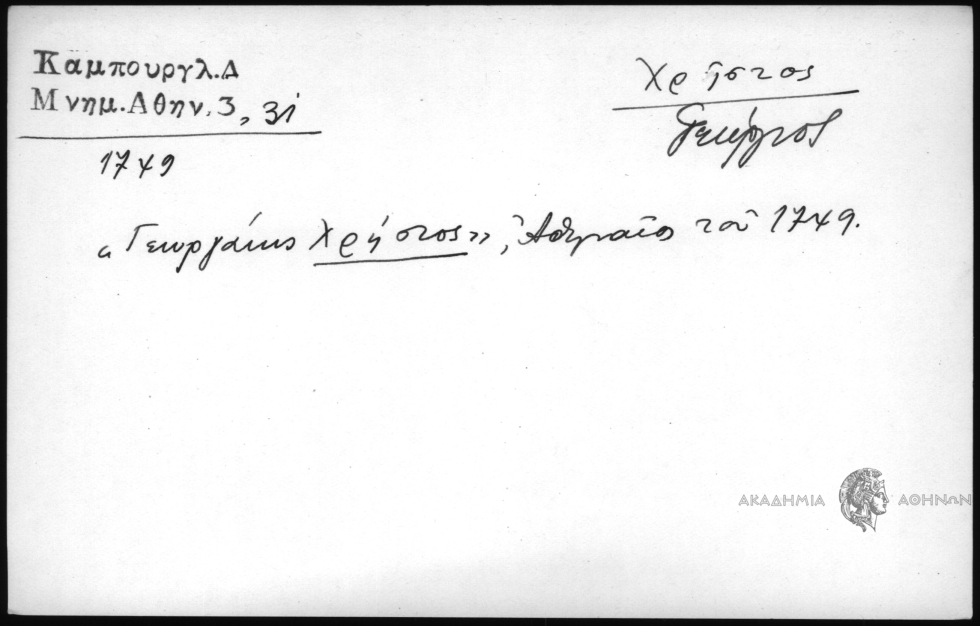 Καμπουργλ.Δ
Μνημ.Αθην.3, 31
1749
Χρῆστος
Γεώργιος
«Γεωργάκις Χρήστος», Ἀθηναῖος τοῦ 1749.
ΑΚΑΔΗΜΙΑ ΑΘΗΝΩΝ